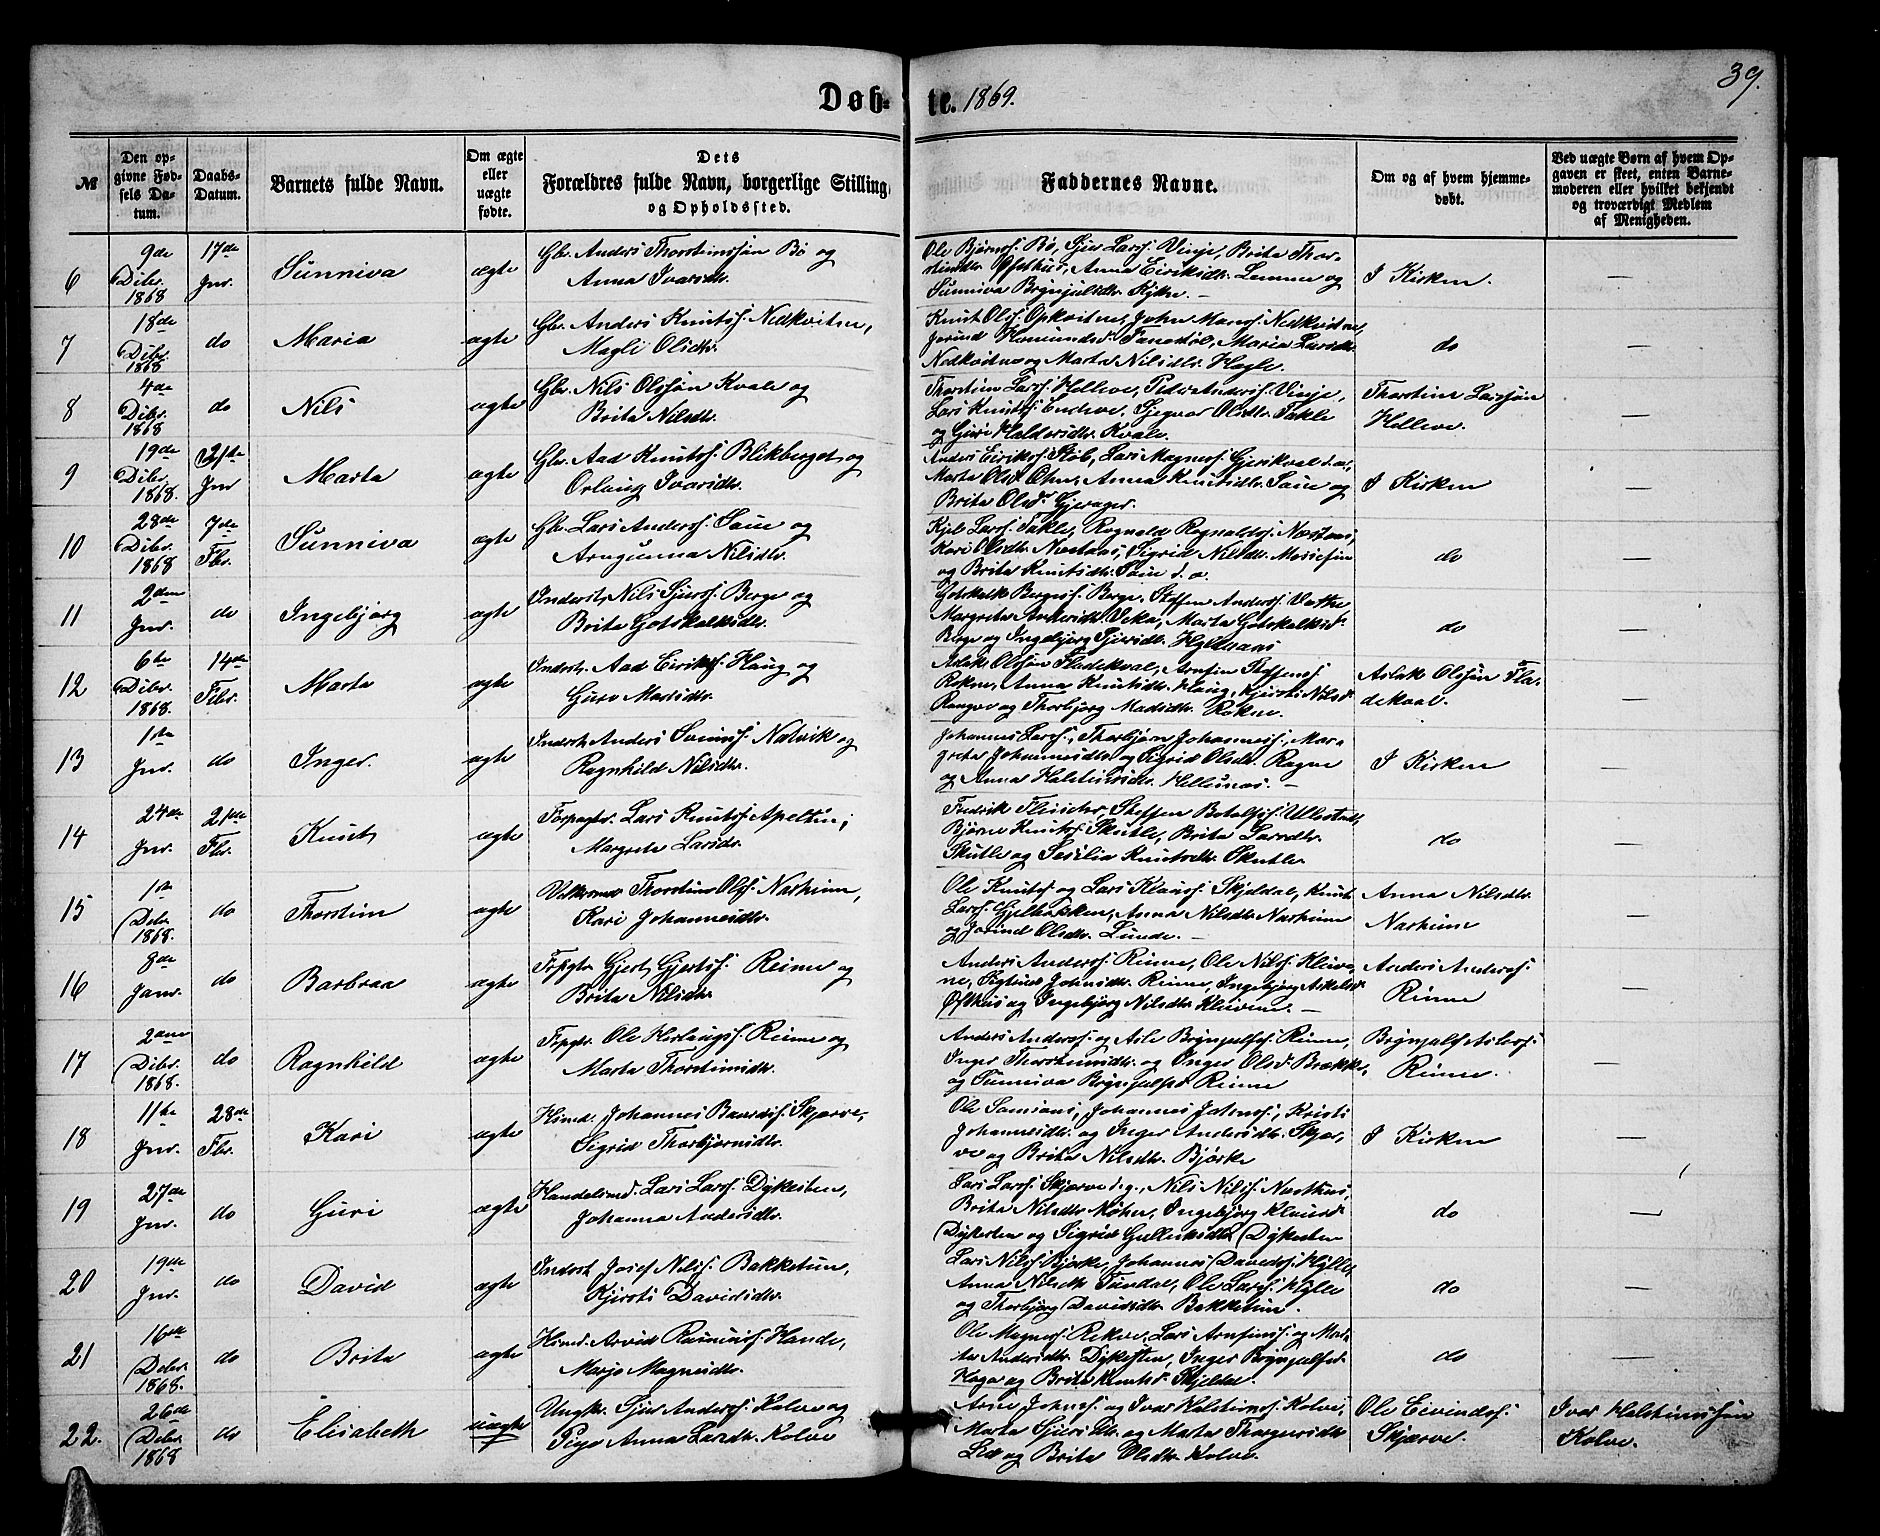 39.
Døb-te. 1869.
№ | Den opgivne Fødsels Datum. | Daabs-Datum. | Barnets fulde Navn. | Om ægte eller uægte fødte. | Dets Forældres fulde Navn, borgerlige Stilling og Opholdssted. | Faddernes Navne. | Om og af hvem hjemmedøbt. | Ved uægte Børn af hvem Opgaven er skeet, enten Barnemoderen eller hvilket bekjendt og troværdigt Medlem af Menigheden.
6 | 9de Dcbr. 1868 | 17de Jnr. | Sunniva | ægte | Gbr. Anders Thorsteinssøn Bø og
Anna Ivarsdtr. | Ole Bjørnss. Bø, Sjur Larss. Vinje, Brita Thor-
steinsdtr. Øfsthus, Anna Eiriksdtr. Lemme og
Sunniva Brynjulsdtr. Rjkre. — | I Kirken. | —
7 | 18de Dcbr. 1868 | do | Maria | ægte | Gbr. Anders Knutss. Nedkvitne,
Magli Olsdtr. | Knut Olss. Opkvitne, John Monss. Nedkvitne,
Jorind Romundsd. Tunestøl, Maria Larsdtr.
Nedkvitne og Marta Nilsdtr. Hagle. | do | —
8 | 4de Dcbr. 1868 | do | Nils | ægte | Gbr. Nils Olssøn Kvale og
Brita Nilsdtr. | Thorstein Larss. Helleve, Peder Anderss. Vinje,
Lars Knutss. Endeve, Gjegvor Olsdtr. Takle
og Guri Haldorsdtr. Kvale. | Thorstein Larssøn
Helleve. | —
9 | 19de Dcbr. 1868. | 21de Jnr | Marta | ægte | Gbr. Aad Knutss. Blikberget og
Orlaug Ivarsdtr. | Anders Eirikss. Støb, Lars Magness. Gjerskval d.æ.,
Marta Olsd. Ohn, Anna Knutsdtr. Saue og
Brita Olsd. Gjerager. | I Kirken | —
10 | 28de Dcbr. 1868 | 7de Fbr. | Sunniva | ægte | Gbr. Lars Anderss. Saue og
Arngunna Nilsdtr. | Kjel Larss. Takle, Rognald Rognaldss. Næstaas,
Kari Olsdtr. Næstaas, Sigrid Nilsdtr.
og Brita Knutsdtr. Saue d. æ. | do | —
11 | 2den Jnr. | do | Ingebjørg | ægte | Inderst, Nils Sjurss. Berge og
Brita Gotskalksdtr. | Gotskalk Bergess. Berge, Steffen Anderss. Væthe
Margreta Andersdtr. Veka, Marta Gotskalksd.
Berge og Ingebjørg Sjursdtr. | do | —
12 | 6te Dcbr. 1868. | 14de Fbr. | Marta | ægte | Inderst. Aad Eirikss. Haug og
Guro Madsdtr. | Aslak Olssøn Fladekval, Arnfin Steffenss.
Rokne, Anna Knutsdtr. Haug, Kjersti Nilsd.
Rongve og Thorbjørg Madsdtr. Rokne. | Aslak Olssøn Fla-
dekval. | —
13 | 1ste Jnr. | do | Inger. | ægte | Inderst. Anders Sveinss. Nætvik og
Ragnhild Nilsdtr. | Johannes Larss., Thorbjørn Johanness., Mar-
greta Johannesdtr. og Sigrid Olsdtr. Rogne
og Anna Halsteinsdtr. Hellesnæs. — | I Kirken | —
14 | 24de Jnr. | 21de Fbr. | Knut | ægte | Forpagtr. Lars Knutss. Apeltun,
Margreta Larsdtr. | Fredrik Fleischer, Steffen Botolfss. Ullestad,
Bjørne Knutss. Skutle, Brita Larsdtr.
Skutle og Sesilia Knutsdtr. Skutle. | do | —
15 | 1ste Dcbr. 1868. | do | Thorstein | ægte | Thorstein Olss. Nasheim,
Kari Johannesdtr. | Ole Knutss. og Lars Klauss. Skjeldal, Knut
Larss. Gjelbakken, Anna Nilsdtr. Nasheim
og Jorind Olsdtr. Lunde. — | Anna Nilsdtr.
Nasheim | —
16 | 8de Janr. | do | Barbraa | ægte | Frpgtr. Gjert Gjertss. Reime og
Brita Nilsdtr. | Anders Anderss. Rimme, Ole Nilss. Kleive-
ne, Sigtrud Johnsdtr. Rimme, Ingebjørg Askelsd.
Øfsthus og Ingebjørg Nilsdtr. Kleivene. — | Anders Anderss.
Rimme | —
17 | 2den Dcbr. 1868. | do | Ragnhild | ægte | Frpgtr. Ole Herlaugss. Rimme og
Marta Thorsteinsdtr. | Anders Anderss. og Asle Brynjulfss. Rimme,
Inger Thorsteinsdtr. og Inger Olsd. Brække,
og Sunniva Brynjulfsd. Rimme | Brynjulf Asless.
Rimme. | —
18 | 11te Jnr. | 28de Fbr. | Kari | ægte | Husmd. Johannes Baardss. Skjerve,
Sigrid Thorbjørnsdtr. | Ole Samsons., Johannes Johness., Kristi
Johannesdtr. og Inger Andersdtr. Skjer-
ve og Brita Nilsdtr. Bjørke | I Kirken | —
19 | 27de Jnr. | do | Guri | ægte | Handelsmd. Lars Larss. Dykesten,
Johanna Andersdtr. | Lars Larss. Skjerve d.y., Nils Nilss. Næsthus,
Brita Nilsdtr. Møhn, Ingebjørg Klausd.
Dykesten og Sigrid Gulleiksdtr. Dykesten | do | —
20 | 19de Jnr. | do | David | ægte | Inderst Josef Nilss. Bakketun,
Kjersti Davidsdtr. | Lars Nilss. Bjørke, Johannes Davidss. Hylle,
Anna Nilsdtr. Tundal, Ole Larss. Hylle
og Thorbjørg Davidsdtr. Bakketun. | do | —
21 | 16de Dcbr. 1868. | do | Brita | ægte | Husmd. Arvid Rasmuss. Hande,
Marjo Magnesdtr. | Ole Magness. Rekve, Lars Arnfinss. og Mar-
ta Andersdtr. Dykesten, Inger Brynjulfsd.
Haga og Brita Knutsd. Skjeldal. | do | —
22. | 26de Dcbr. 1868 | do | Elisabeth | uægte | Ungkr. Sjur Anderss. Kolve og
Pige Anna Larsdtr. Kolve | Arne Johnss. og Ivar Halsteinss. Kolve,
Marta Sjursdtr. og Marta Thorgersdtr.
Lid og Brita Olsdtr. Kolve. | Ole Eivindss.
Skjerve. | Ivar Halsteinssøn
Kolve.